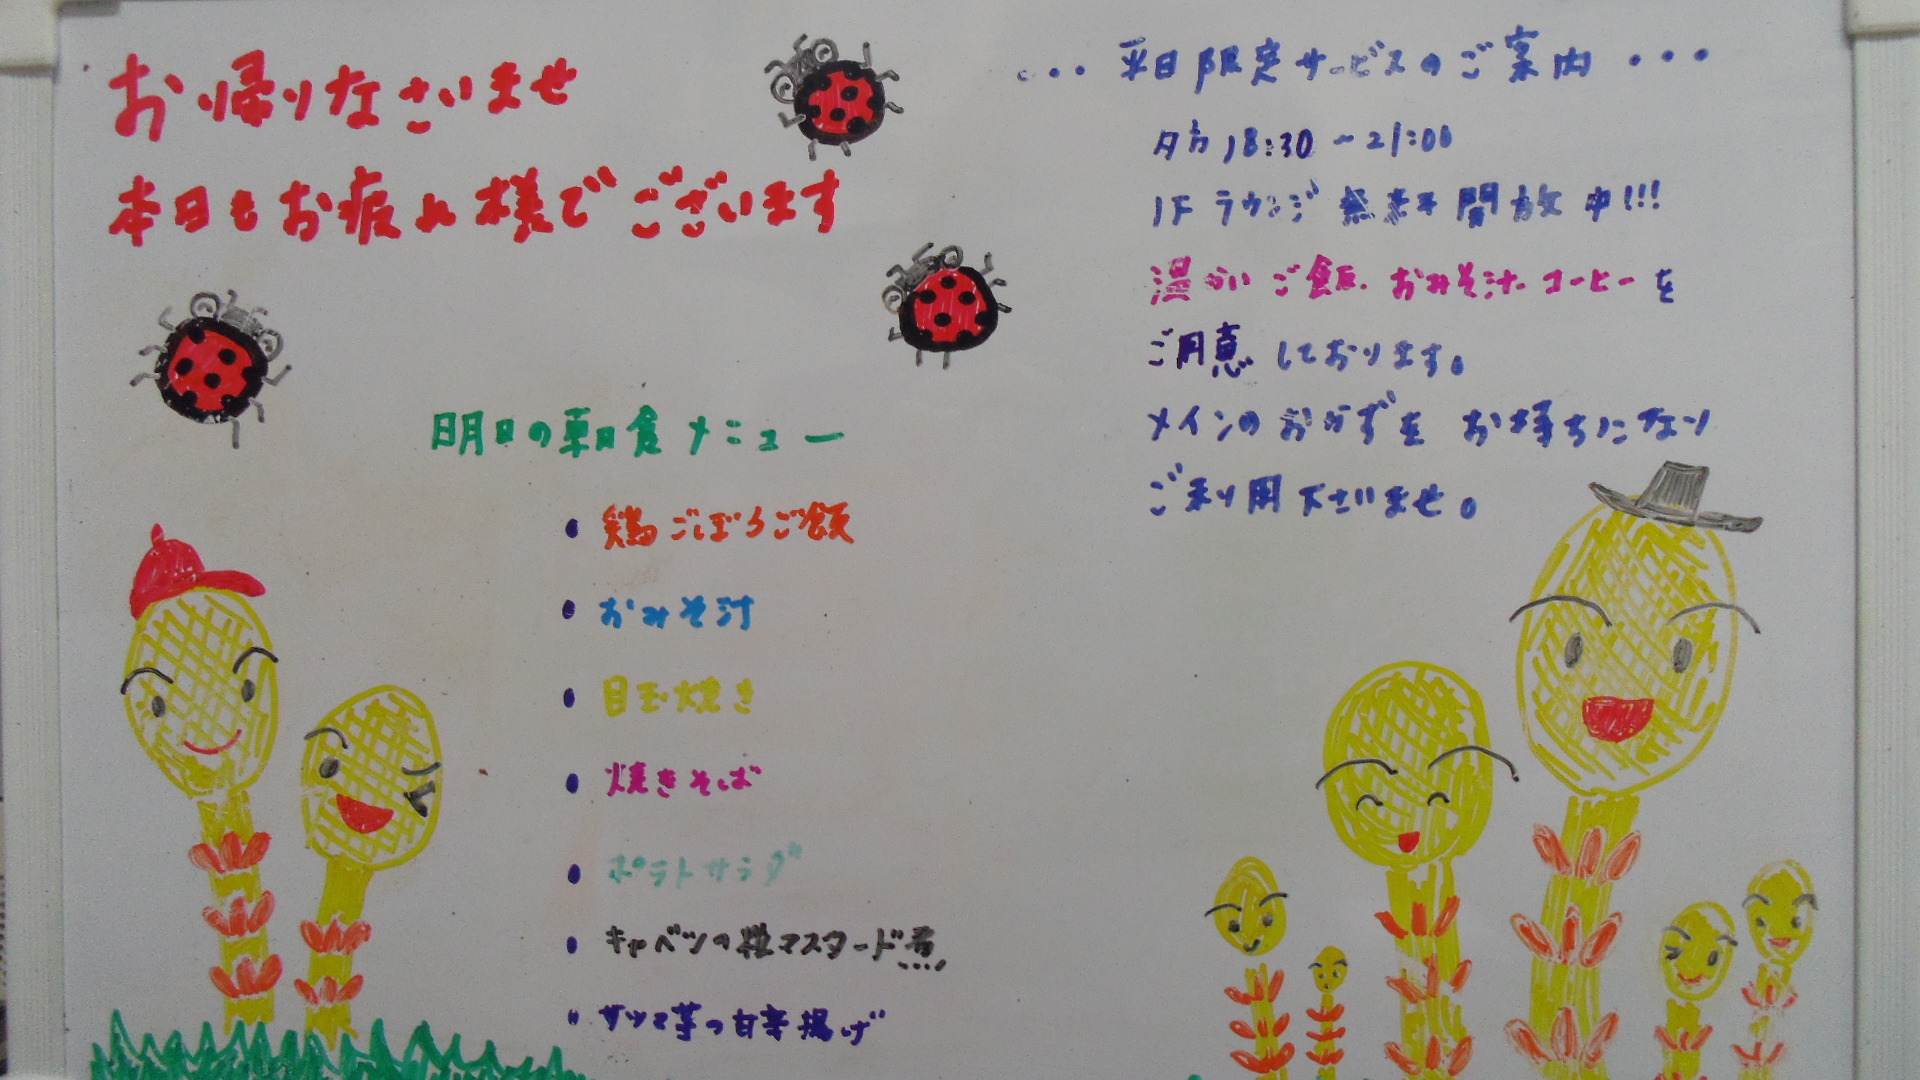 お帰りなさいませ
本日もお疲れ様でございます
明日の朝食メニュー
・鶏ごぼうご飯
・おみそ汁
・目玉焼き
・焼きそば
・ポテトサラダ
・キャベツの粒マスタード煮
・サツマ芋の甘辛揚げ
・・・平日限定サービスのご案内・・・
夕方18:30~21:00
1Fラウンジ無料開放中!!!
温かいご飯、おみそ汁、コーヒーを
ご用意しております。
メインのおかずをお持ちになり
ご利用下さいませ。